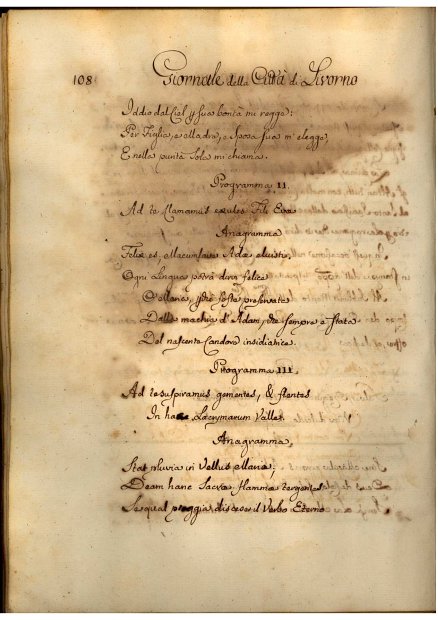 108 Giornale della Città di Livorno
Iddio dal Ciel p sua bontà mi regge:
Per Figlia, e Madre, e Sposa sua m'elegge
E nella puntà Sola mi chiama.
Programma II.
Ad te Clamamus exules Filii Eva
Anagramma
Felix es, Maculam Adæ
Ogni Lingua potrà dirti felice
O Maria, che foste preservata
Dalla machia d'Adam, che sempre è stata
Del nascente Candore insidiatrice.
Programma III.
Ad te suspiramus gementes, & flentes
In hac Lacrymarum Valle.
Anagramma
Stat pluvia in Vellus Maria,
Deam hanc Sacra flamma tergente
Se qual pioggia discese il Verbo Eterno